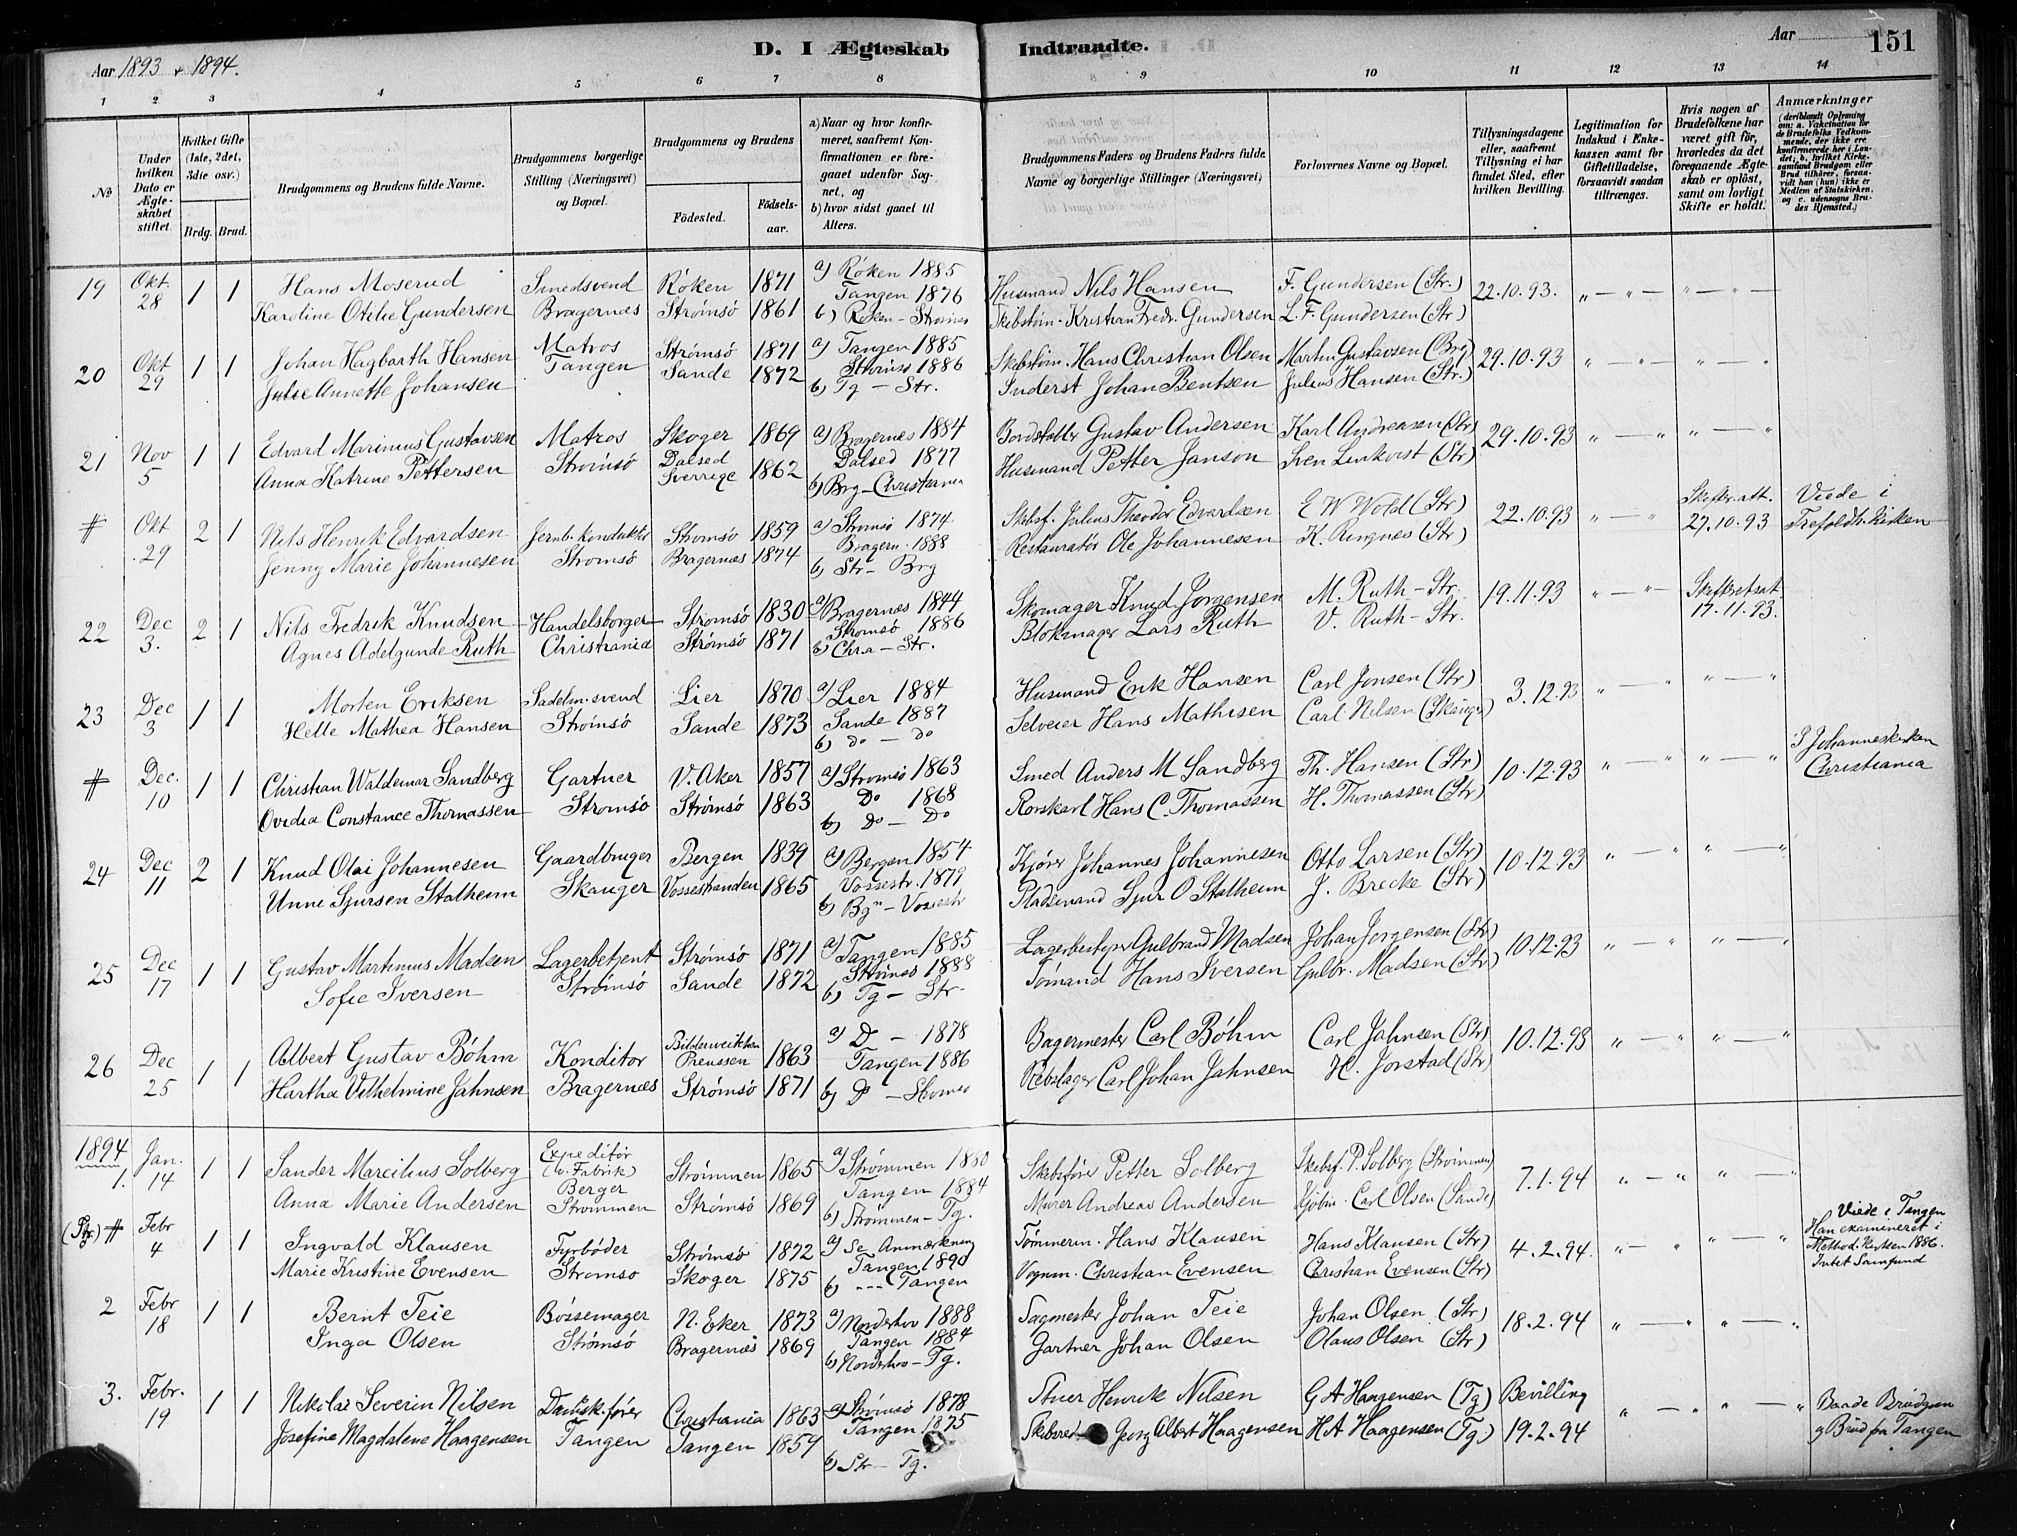 Aar 1893 + 1894.
D. I Ægteskab Indtraadte.
Aar 151
1 2 3 4 5 6 7 8 9 10 11 12 13 14
No
Under hvilken Dato er Ægteskabet stiftet.
Hvilket Gifte (1ste, 2det, 3die osv.)
Brdg. Brud.
Brudgommens og Brudens fulde Navne.
Brudgommens borgerlige Stilling (Næringsvei) og Bopæl.
Brudgommens og Brudens
Födested.
Födselsaar.
a) Naar og hvor konfirmeret, saafremt Konfirmationen er foregaaet udenfor Sognet, og
b) hvor sidst gaaet til Alters.
Brudgommens Faders og Brudens Faders fulde Navne og borgerlige Stillinger (Næringsvei)
Forlovernes Navne og Bopæl.
Tillysningsdagene eller, saafremt Tillysning ei har fundet Sted, efter hvilken Bevilling.
Legitimation for Indskud i Enkekassen samt for Giftetilladelse, forsaavidt saadan tiltrænges.
Hvis nogen af Brudefolkene har været gift för, hvorledes da det foregaaende Ægteskab er oplöst, samt om lovligt Skifte er holdt.
Anmærkninger (deriblandt Oplysning om: a. Vakcination for de Brudefolks Vedkommende, der ikke ere konfirmerede her i Landet; b. hvilket Kirkesamfund Brudgom eller Brud tilhörer, forsaavidt han (hun) ikke er Medlem af Statskirken, og c. udensogns Brudes Hjemsted.)
19 Okt. 28 1 1 Hans Moserud Smedsvend Røken 1871 a) Røken 1885 Husmand Nils Hansen F. Gundersen (Str.) 22.10.93. " — " — " — " —
Karoline Otilie Gundersen Bragernæs Strømsø 1861 Tangen 1876 Skibstøm. Kristian Fredr. Gundersen L. F. Gundersen (Str)
b) Røken - Strømsø
20 Okt 29 1 1 Johan Hagbarth Hansen Matros Strømsø 1871 a) Tangen 1885 Skibstøm. Hans Christian Olsen Martin Gustavsen (Brg) 29.10.93 " " — " "
Julie Annette Johansen Tangen Sande 1872 Strømsø 1886 Inderst Johan Bentsen Julius Hansen (Str.)
b) Tg - Str.
21 Nov 5 1 1 Edvard Marinius Gustavsen Matros Skoger 1869 a) Bragernæs 1884 Bordstabler Gustav Andersen Karl Andreasen (Str) 29.10.93 " — " " — "
Anna Katrine Pettersen Strømsø Dalsed Sverrige 1862 Dalsed 1877 Husmand Petter Janson Sven Linkvist (Str)
b) Brg - Christiania
# Okt. 29 2 1 Nils Henrik Edvardsen Jernb. Konduktør Strømsø 1859 a) Strømsø 1874 Skibsf. Julius Theodor Edvardsen E W Wold (Str) 22.10.93 " — " Skifteratt. 27.10.93 Viede i Trefoldh. kirken
Jenny Marie Johannesen Strømsø Bragernæs 1874 Bragern. 1888 Restauratør Ole Johannesen K. Ringnes (Str)
b) Str - Brg
22 Dec 3. 2 1 Nils Fredrik Knudsen Handelsborger Strømsø 1830 a) Bragernæs 1844 Skomager Knud Jørgensen M. Ruth - Str. 19.11.93 " — " — Skifteretsat. 17.11.93.
Agnes Adelgunde Ruth Christiania Strømsø 1871 Strømsø 1886 Blokmager Lars Ruth V. Ruth - Str.
b) Chra - Str.
23 Dec 3 1 1 Morten Eriksen Sadelm. svend Lier 1870 a) Lier 1884 Husmand Erik Hansen Carl Jonsen (Str) 3.12.93 " — " " — "
Helle Mathea Hansen Strømsø Sande 1873 Sande 1887 Selveier Hans Mathisen Carl Nilsen (Skauger)
b) Do - Do
# Dec. 10 1 1 Christian Waldemar Sandberg Gartner V. Aker 1857 a) Strømsø 1863 Smed Anders M Sandberg Th. Hansen (Str) 10.12.93 " — " " — " I Johanneskirken Christiania
Ovidia Constance Thomassen Strømsø Strømsø 1863 Do 1868 Rorskarl Hans C. Thomassen H. Thomassen (Str)
b) Do - Do
24 Dec 11 2 1 Knud Olai Johannesen Gaardbruger Bergen 1839 a) Bergen 1854 Kjører Johannes Johannesen Otto Larsen (Str) 10.12.93 " — " " — "
Unni Sjursen Stalheim Skauger Vossestranden 1865 Vossestr. 1879 Pladsmand Sjur O Stalheim J. Brecke (Str)
b) Bgn - Vossestr
25 Dec 17 1 1 Gustav Martinius Madsen Lagerbetjent Strømsø 1871 a) Tangen 1885 Lagerbestyrer Gulbrand Madsen Johan Jørgensen (Str) 10.12.93 " — " " — "
Sofie Iversen Strømsø Sande 1872 Strømsø 1888 Tømand Hans Iversen Gulbr. Madsen (Str)
b) Tg - Str.
26 Dec 25 1 1 Albert Gustav Böhm Konditor Preussen 1863 a) D - 1878 Bagermester Carl Böhm Carl Jahnsen (Str) 10.12.93 " — " " — "
Hartha Vilhelmine Jahnsen Bragernæs Strømsø 1871 Tangen 1886 Rebslager Carl Johan Jahnsen H. Jorstad (Str)
b) D - Strømsø
1894
1. Jan. 14 1 1 Sander Marcilius Solberg Expeditør (v. Fabrik) Berger Strømmen 1865 a) Strømmen 1880 Skibsfører Petter Solberg Skibsf. P. Solberg (Strømmen) 7.1.94 " — " " — "
Anna Marie Andersen Strømmen Strømsø 1869 Tangen 1884 Murer Andreas Andersen Kjøbm. Carl Olsen (Sande)
b) Strømmen - Tg.
(Str) # Febr 4 1 1 Ingvald Klausen Fyrbøder Strømsø 1872 a) Se Anmærkning Tømmerm. Hans Klausen Hans Klausen (Str) 4.2.94. " — " " — " Viede i Tangen Han examineret i Method. Kirken 1886. Intet Samfund
Marie Kristine Evensen Strømsø Skoger 1875 Tangen 1890 Vognm. Christian Evensen Christian Evensen (Str)
b) --- Tangen
2 Febr 18 1 1 Bernt Teie Bøssemager N. Eker 1873 a) Norderhov 1888 Sagmester Johan Teie Johan Olsen (Str) 18.2.94 " — " " — "
Inga Olsen Strømsø Bragernæs 1869 Tangen 1884 Gartner Johan Olsen Olaus Olsen (Str)
b) Norderhov - Tg.
3. Febr. 19 1 1 Nikolai Severin Nilsen Christiania 1863 a) Strømsø 1878 Stuer Henrik Nilsen G A Haagensen (Tg) Bevilling " — " " — " Baade Brudgom og Brud fra Tangen
Josefine Magdalene Haagensen Tangen Tangen 1859 Tangen 1875 Skibsred Georg Albert Haagensen H A Haagensen (Tg) 19.2.94
b) Str - Tg.